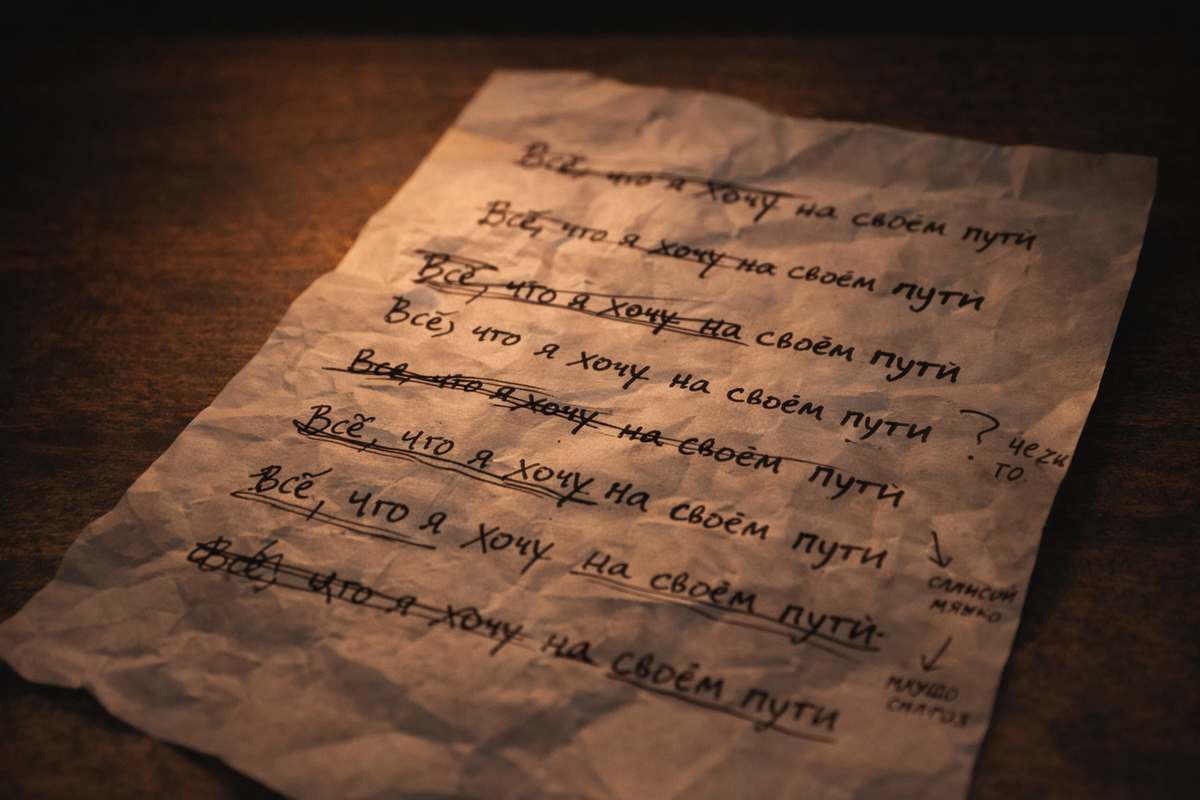 Всё, что я хочу на своём пути
Всё, что я хочу на своём пути
Всё, что я хочу на своём пути
Всё, что я хочу на своём пути
Все, что я хочу на своём пути
Всё, что я хочу на своём пути
Всё, что я хочу на своём пути.
Всё, что я хочу на своём пути
?
то.